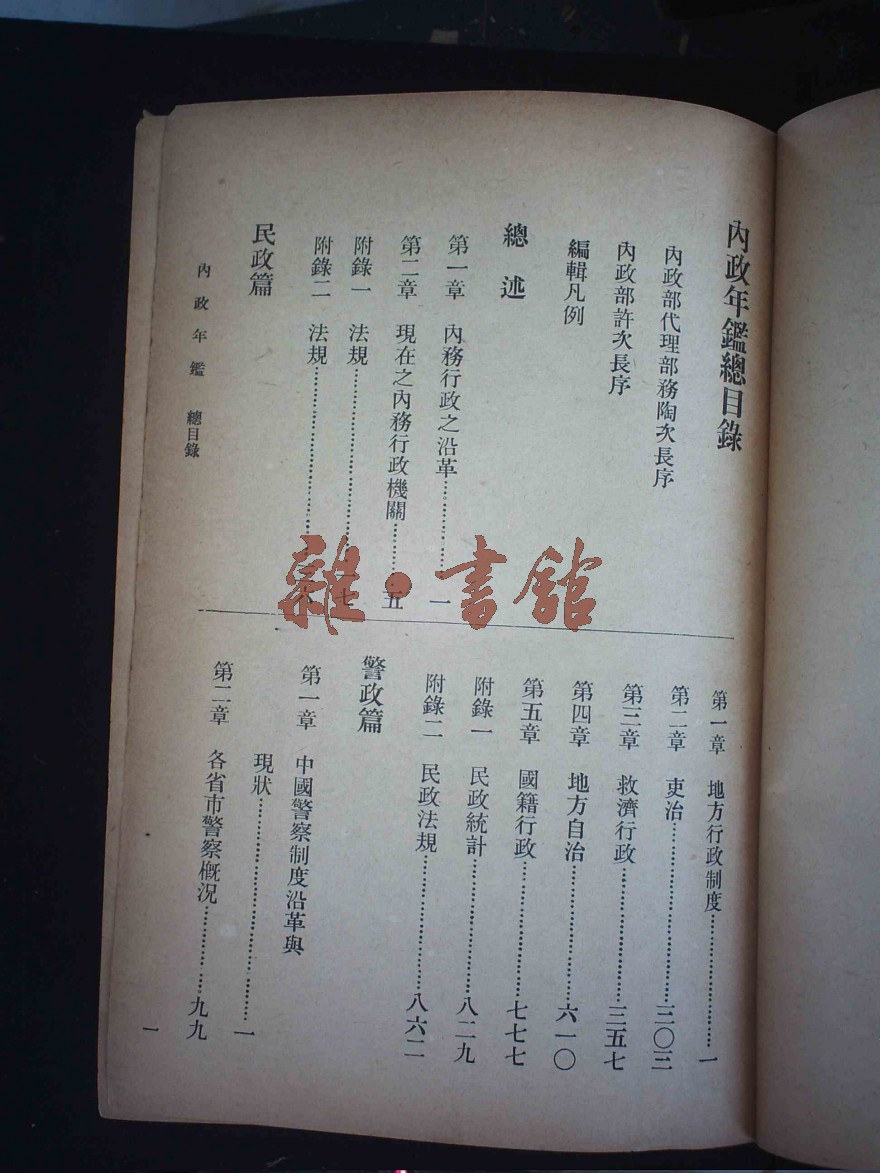 內政年鑑總目錄
內政部代理部務陶次長序
內政部許次長序
編輯凡例
總述
第一章 內務行政之沿革……………一
第二章 現在之內務行政機關…………五
附錄一 法規……………………七
附錄二 法規……………………
民政篇
第一章 地方行政制度……………………一
第二章 吏治……………………三〇三
第三章 救濟行政……………………三五七
第四章 地方自治……………………六一〇
第五章 國籍行政……………………七七七
附錄一 民政統計……………………八二九
附錄二 民政法規……………………八六二
警政篇
第一章 中國警察制度沿革與
現狀……………………一
第二章 各省市警察概況……………九九
內政年鑑 總目錄
一
雜·書館